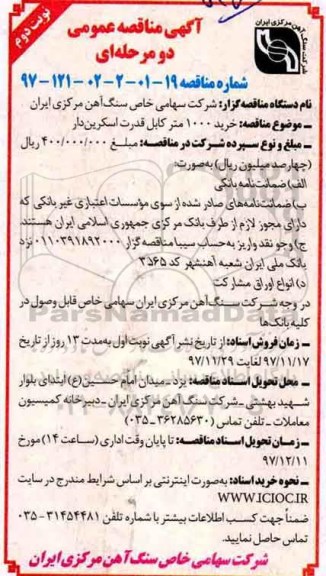 نوبت دوم
شرکت سنگ آهن مرکزی ایران
آگهی مناقصه عمومی
دو مرحله‌ای
شماره مناقصه ۱۹-۰۱-۲-۰۲-۱۲۱-۹۷
نام دستگاه مناقصه‌گزار: شرکت سهامی خاص سنگ‌آهن مرکزی ایران
ـ موضوع مناقصه: خرید ۱۰۰۰ متر کابل قدرت اسکرین‌دار
ـ مبلغ و نوع سپرده شرکت در مناقصه: مبلغ ۴۰۰/۰۰۰/۰۰۰ ریال
(چهارصد میلیون ریال) به‌صورت:
الف) ضمانت‌نامه بانکی
ب) ضمانت‌نامه‌های صادر شده از سوی مؤسسات اعتباری غیر بانکی که
دارای مجوز لازم از طرف بانک مرکزی جمهوری اسلامی ایران هستند.
ج) وجه نقد واریز به‌حساب سیبا مناقصه‌گزار ۰۱۱۰۳۹۱۸۹۲۰۰۰ نزد
بانک ملی ایران شعبه آهنشهر کد ۳۵۶۵
د) انواع اوراق مشارکت
در وجه شرکت سنگ‌آهن مرکزی ایران سهامی خاص قابل وصول در
کلیه بانک‌ها
ـ زمان فروش اسناد: از تاریخ نشر آگهی نوبت اول به‌مدت ۱۳ روز از تاریخ
۹۷/۱۱/۱۷ لغایت ۹۷/۱۱/۲۹
ـ محل تحویل اسناد مناقصه: یزد ـ میدان امام حسین(ع) ابتدای بلوار
شهید بهشتی ـ شرکت سنگ آهن مرکزی ایران ـ دبیرخانه کمیسیون
معاملات ـ تلفن تماس (۳۶۲۸۵۶۳۰-۰۳۵)
ـ زمان تحویل اسناد مناقصه: تا پایان وقت اداری (ساعت ۱۴) مورخ
۹۷/۱۲/۱۱
ـ نحوه خرید اسناد: به‌صورت اینترنتی بر اساس شرایط مندرج در سایت
WWW.ICIOC.IR
ضمناً جهت کسب اطلاعات بیشتر با شماره تلفن ۳۱۴۵۴۴۸۱-۰۳۵
تماس حاصل نمایید.
شرکت سهامی خاص سنگ آهن مرکزی ایران